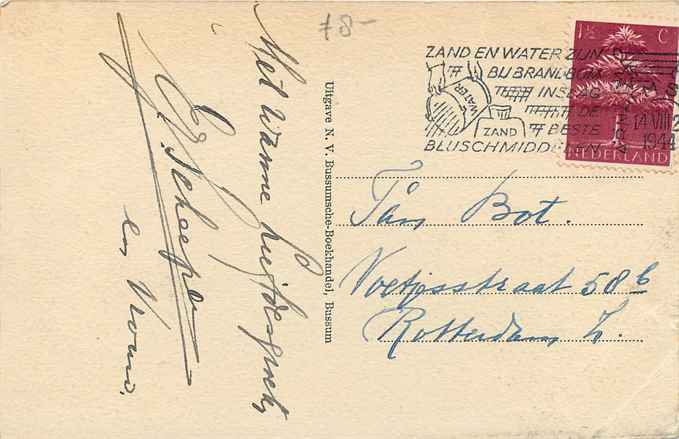 78-
Met warme liefdesgroet,
Scheepe
en Vrouw.
Uitgave N. V. Bussumsche-Boekhandel, Bussum
ZAND EN WATER ZIJN
BIJ BRANDBOM
INSLAG
DE
BESTE
BLUSCHMIDDELEN
WATER
ZAND
14 VIII
1944
1½ C
NEDERLAND
Bot.
Voetjesstraat 58 b
Rotterdam Z.